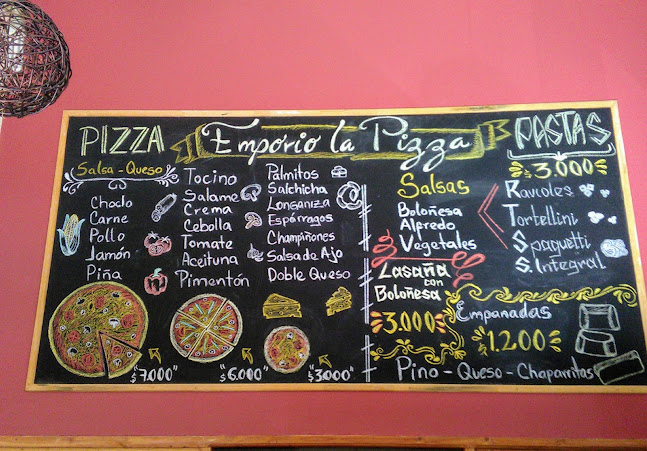 Emporio la Pizza
PIZZA
Salsa - Queso
Choclo
Carne
Pollo
Jamón
Piña
Tocino
Salame
Crema
Cebolla
Tomate
Aceituna
Pimentón
Palmitos
Salchicha
Longaniza
Espárragos
Champiñones
Salsa de Ajo
Doble Queso
"$7.000"
"$6.000"
"$3.000"
Salsas
Boloñesa
Alfredo
Vegetales
Lasaña
con
Boloñesa
$3.000
PASTAS
$3.000
Ravioles
Tortellini
Spaguetti
S. Integral
Empanadas
$1.200
Pino - Queso - Chaparritas